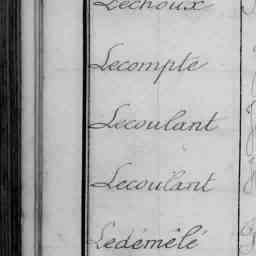 Lechoux
Lecompte
Lecoulant
Lecoulant
Ledémêlé